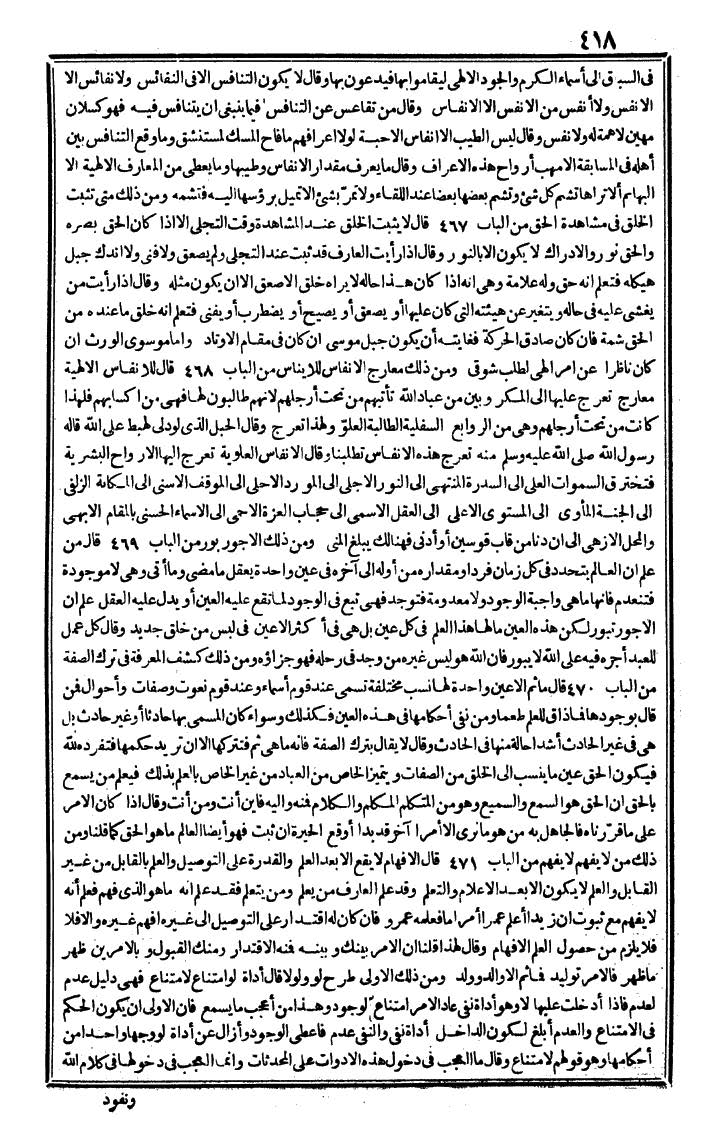 ٤١٨
فى السبق الى أسماء الكرم والجود الالهى ليقاموا بها فيدعون بها وقال لا يكون التنافس الافى النفائس ولا نفائس الا
الانفس ولا أنفس من الانفس الا الانفاس وقال من تقاعس عن التنافس فيما ينبغى ان يتنافس فيه فهو كسلان
مهين لا همة له ولا نفس وقال ليس الطيب الا انفاس الاحبة لولا اعرافهم ما فاح المسك لمستنشق وما وقع التنافس بين
أهله فى المسابقة الا مهب أرواح هذه الاعراف وقال ما يعرف مقدار الانفاس وطيبها وما يعطى من المعارف الالهية الا
البهائم ألا تراها تشم كل شئ وتشم بعضها بعضا عند اللقاء ولا تمرّ بشئ الا تميل برؤسها اليه فتشمه ومن ذلك متى تثبت
الخلق فى مشاهدة الحق من الباب ٤٦٧ قال لا يثبت الخلق عند المشاهدة وقت التجلى الا اذا كان الحق بصره
والحق نور والادراك لا يكون الا بالنور وقال اذا رأيت العارف قد ثبت عند التجلى ولم يصعق ولا فنى ولا اندك جبل
هيكله فتعلم انه حق وله علامة وهى انه اذا كان هذا حاله لا يراه خلق الاصعق الا ان يكون مثله وقال اذا رأيت من
يغشى عليه فى حاله ويتغير عن هيئته التى كان عليها أو يصعق أو يصيح أو يضطرب أو يفنى فتعلم انه خلق ما عنده من
الحق شمة فان كان صادق الحركة فغايته أن يكون جبل موسى ان كان فى مقام الاوتاد واما موسوى الورث ان
كان ناظرا عن امر الهى لطلب شوقى ومن ذلك معارج الانفاس للايناس من الباب ٤٦٨ قال للانفاس الالهية
معارج تعرج عليها الى المكر وبين من عباد الله تأتيهم من تحت أرجلهم لانهم طالبون لها فهى من اكسابهم فلهذا
كانت من تحت أرجلهم وهى من الروابع السفلية الطالبة العلوّ ولهذا تعرج وقال الحبل الذى لو دلى لهبط على الله قاله
رسول الله صلى الله عليه وسلم منه تعرج هذه الانفاس تطلبنا وقال الانفاس العلوية تعرج اليها الارواح البشرية
فتخترق السموات العلى الى السدرة المنتهى الى النور الاجلى الى المورد الاحلى الى الموقف الاسنى الى المكانة الزلفى
الى الجنة المأوى الى المستوى الاعلى الى العقل الاسمى الى حجاب العزة الاحمى الى الاسماء الحسنى بالمقام الابهى
والمحل الازهى الى ان دنا من قاب قوسين أو أدنى فهنالك يبلغ المنى ومن ذلك الاجور بور من الباب ٤٦٩ قال من
علم ان العالم يتجدد فى كل زمان فرد أو مقداره من أوله الى آخره فى عين واحدة يعقل ما مضى وما أتى وهى لا موجودة
فتنعدم فانها ماهى واجبة الوجود ولا معدومة فتوجد فهى تبع فى الوجود لما تقع عليه العين أو يدل عليه العقل علم ان
الاجور تبور لكن هذه العين ما لها هذا العلم فى كل عين بل هى فى أكثر الاعين فى لبس من خلق جديد وقال كل عمل
للعبد أجره فيه على الله لا يبور فان الله هو ليس غيره من وجد فى رحله فهو جزاؤه ومن ذلك كشف المعرفة فى ترك الصفة
من الباب ٤٧٠ قال ما ثم الا عين واحدة لها نسب مختلفة تسمى عند قوم أسماء وعند قوم نعوت وصفات وأحوال فمن
قال بوجودها فذاق للعلم طعما ومن نفى أحكامها فى هذه العين فكذلك وسواء كان المسمى بها حادثا أو غير حادث بل
هى فى غير الحادث أشد احالة منها فى الحادث وقال لا يقال بترك الصفة فانه ماهى ثم فتتركها الا ان تريد حكمها فتفرده لله
فيكون الحق عين ما ينسب الى الخلق من الصفات ويتميز الخاص من العباد من غير الخاص بالعلم بذلك فيعلم من يسمع
بالحق ان الحق هو السمع والسميع وهو من المتكلم المتكلم والكلام فنه واليه فاين أنت ومن أنت وقال اذا كان الامر
على ما قرّرناه فالجاهل به من هو ما نرى الا أمرا آخر قد بدا أوقع الحيرة ان ثبت فهو أيضا العالم ما هو الحق كما قلنا ومن
ذلك من لا يفهم لا يفهم من الباب ٤٧١ قال الافهام لا يقع الا بعد العلم والقدرة على التوصيل والعلم بالقابل من غير
القابل والعلم لا يكون الا بعد الاعلام والتعلم وقد علم العارف من يعلم ومن يتعلم فقد علم انه ماهو الذى فهم فعلم أنه
لا يفهم مع ثبوت ان زيدا أعلم عمرا أمر اما فعلمه عمرو فان كان له اقتدار على التوصيل الى غيره افهم غيره والافلا
فلا يلزم من حصول العلم الافهام وقال لهذا قلنا ان الامر بينك وبينه فنه الاقتدار ومنك القبول وبالامرين ظهر
ما ظهر فالامر توليد فما ثم الا والد وولد ومن ذلك الاولى طرح لو ولولا قال أداة لو امتناع لامتناع فهى دليل عدم
لعدم فاذا أدخلت عليها لا وهو أداة نفى عاد الامر امتناع لوجود وهذا من أعجب ما يسمع فان الاولى ان يكون الحكم
فى الامتناع والعدم أبلغ لكون الداخل أداة نفى والنفى عدم فاعطى الوجود وأزال عن أداة لو وجها واحدا من
أحكامها وهو قولهم لامتناع وقال ما العجب فى دخول هذه الادوات على المحدثات وانما العجب فى دخولها فى كلام الله
ونفود